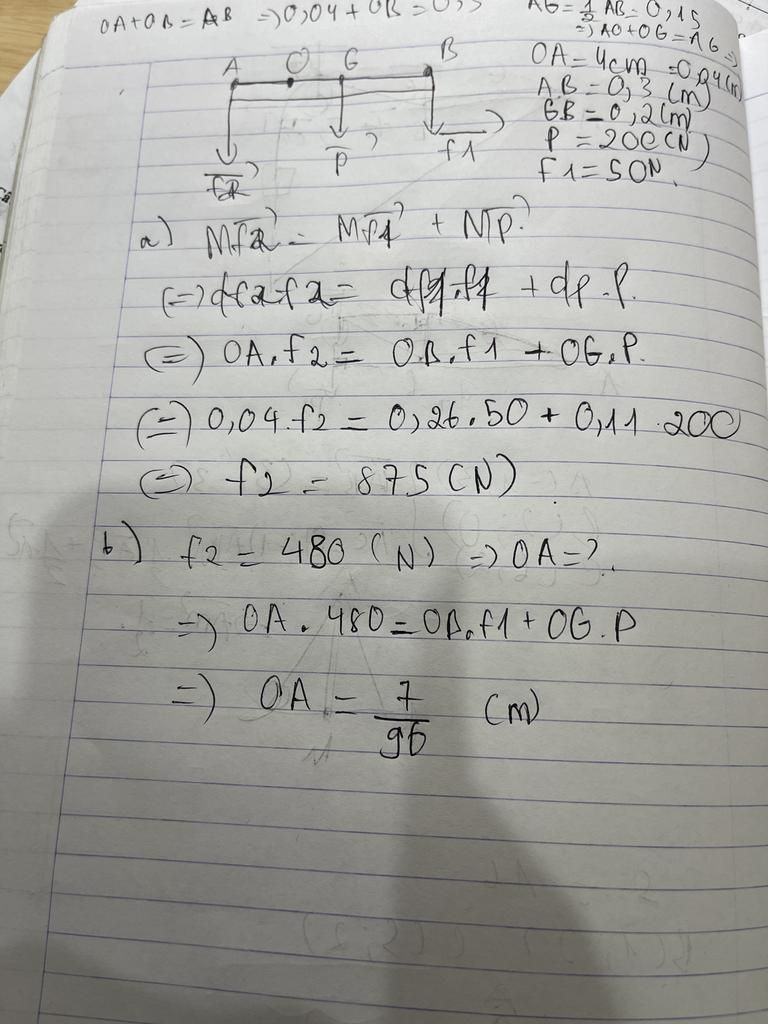 OA + OB = AB => 0,04 + OB = 0,3
AG = 1/2 AB = 0,15
=> AO + OG = AG =>
OA = 4cm = 0,04 (m)
AB = 0,3 (m)
GB = 0,2 (m)
P = 200 (N)
f1 = 50N.
A O G B
f2 P f1
a) Mf2 = Mf1 + Mp
(=) df2.f2 = df1.f1 + dp.P.
(=) OA.f2 = OB.f1 + OG.P.
(=) 0,04.f2 = 0,26.50 + 0,11.200
(=) f2 = 875 (N)
b) f2 = 480 (N) => OA = ?.
=) OA.480 = OB.f1 + OG.P
=) OA = 7/96 (m)